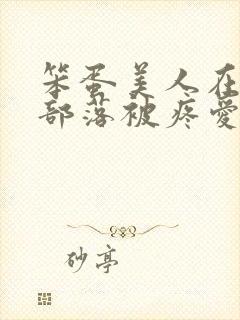 笨蛋美人在
部落被疼爱
砂亭